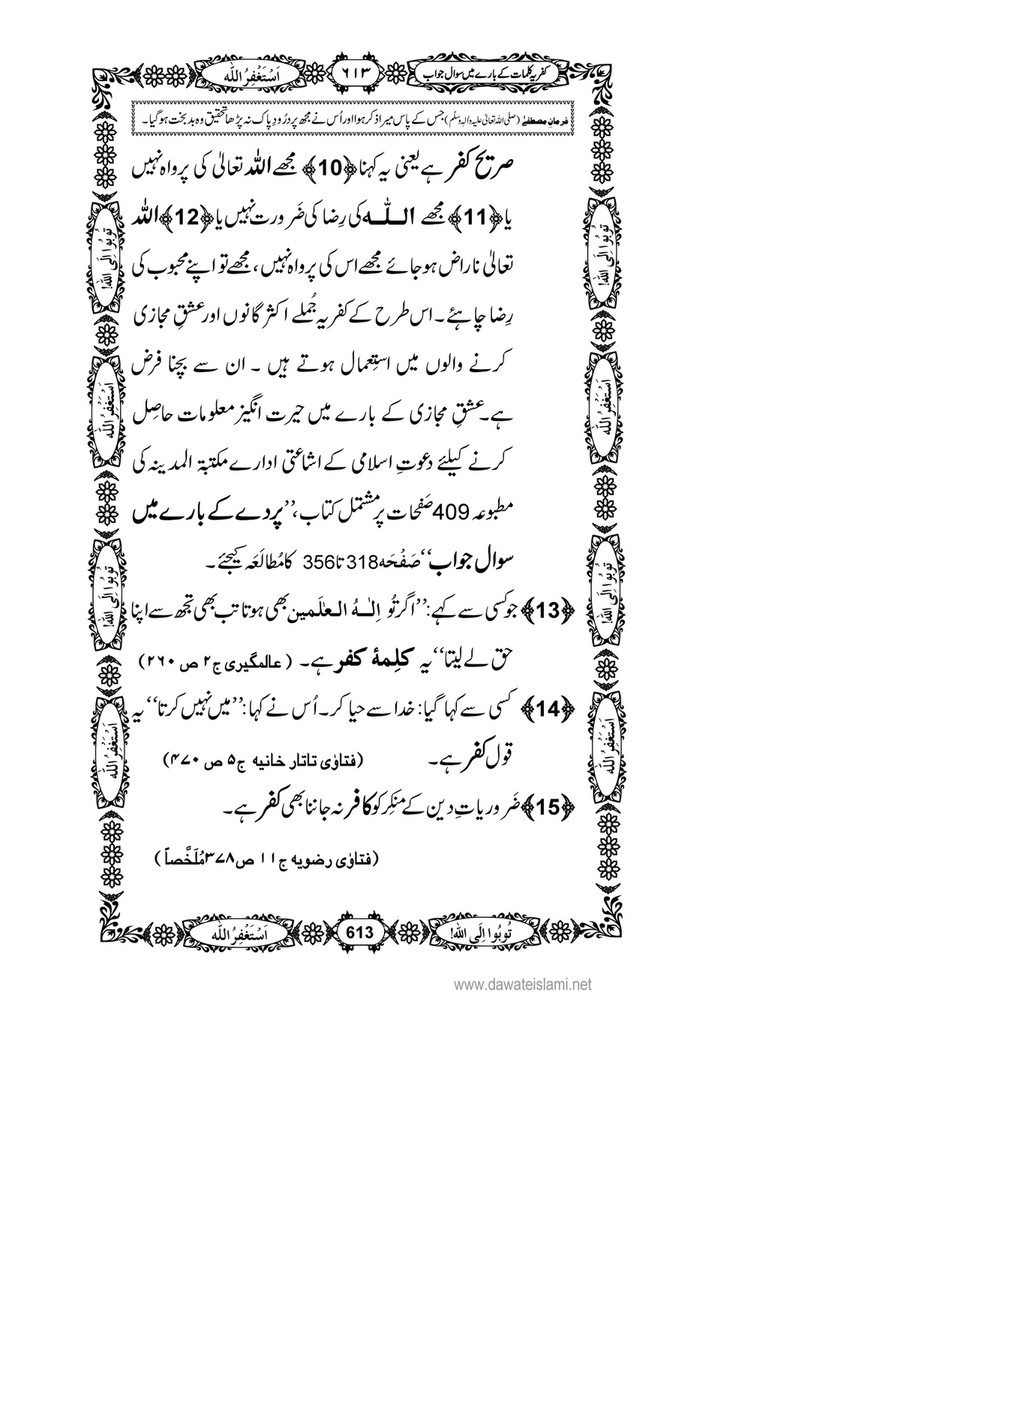 کفریہ کلمات کے بارے میں سوال جواب
٦١٣
اَسْتَغْفِرُاللّٰه
فرمانِ مصطفےٰ (صلی اللہ تعالیٰ علیہ والہٖ وسلم) جس کے پاس میرا ذکر ہوا اور اُس نے مجھ پر دُرُودِ پاک نہ پڑھا تحقیق وہ بد بخت ہو گیا۔
صریح کفر ہے یعنی یہ کہنا ﴿10﴾ مجھے اللہ تعالیٰ کی پرواہ نہیں
یا ﴿11﴾ مجھے اللّٰہ کی رِضا کی ضَرورت نہیں یا ﴿12﴾ اللہ
تعالیٰ ناراض ہو جائے مجھے اس کی پرواہ نہیں، مجھے تو اپنے محبوب کی
رِضا چاہئے۔ اس طرح کے کفریہ جُملے اکثر گانوں اور عشقِ مجازی
کرنے والوں میں استِعمال ہوتے ہیں ۔ ان سے بچنا فرض
ہے۔ عشقِ مجازی کے بارے میں حیرت انگیز معلومات حاصِل
کرنے کیلئے دعوتِ اسلامی کے اشاعتی ادارے مکتبۃ المدینہ کی
مطبوعہ 409 صَفحات پر مشتمل کتاب، ’’پردے کے بارے میں
سوال جواب‘‘ صَفْحَہ 318 تا 356 کا مُطالَعَہ کیجئے۔
﴿13﴾ جو کسی سے کہے: ’’اگر تُو اِلٰـہُ العٰلَمین بھی ہوتا تب بھی تجھ سے اپنا
حق لے لیتا‘‘ یہ کلِمۂ کفر ہے۔ (عالمگیری ج٢ ص ٢٦٠)
﴿14﴾ کسی سے کہا گیا: خدا سے حیا کر۔ اُس نے کہا: ’’میں نہیں کرتا‘‘ یہ
قول کفر ہے۔ (فتاوٰی تاتار خانیہ ج٥ ص ٤٧٠)
﴿15﴾ ضَروریاتِ دین کے منکِر کو کافر نہ جاننا بھی کفر ہے۔
(فتاوٰی رضویہ ج١١ ص٣٧٨ مُلَخَّصاً)
تُوبُوا اِلَی اللّٰه!
اَسْتَغْفِرُاللّٰه
تُوبُوا اِلَی اللّٰه!
اَسْتَغْفِرُاللّٰه
تُوبُوا اِلَی اللّٰه!
اَسْتَغْفِرُاللّٰه
تُوبُوا اِلَی اللّٰه!
اَسْتَغْفِرُاللّٰه
تُوبُوا اِلَی اللّٰه!
613
اَسْتَغْفِرُاللّٰه
www.dawateislami.net